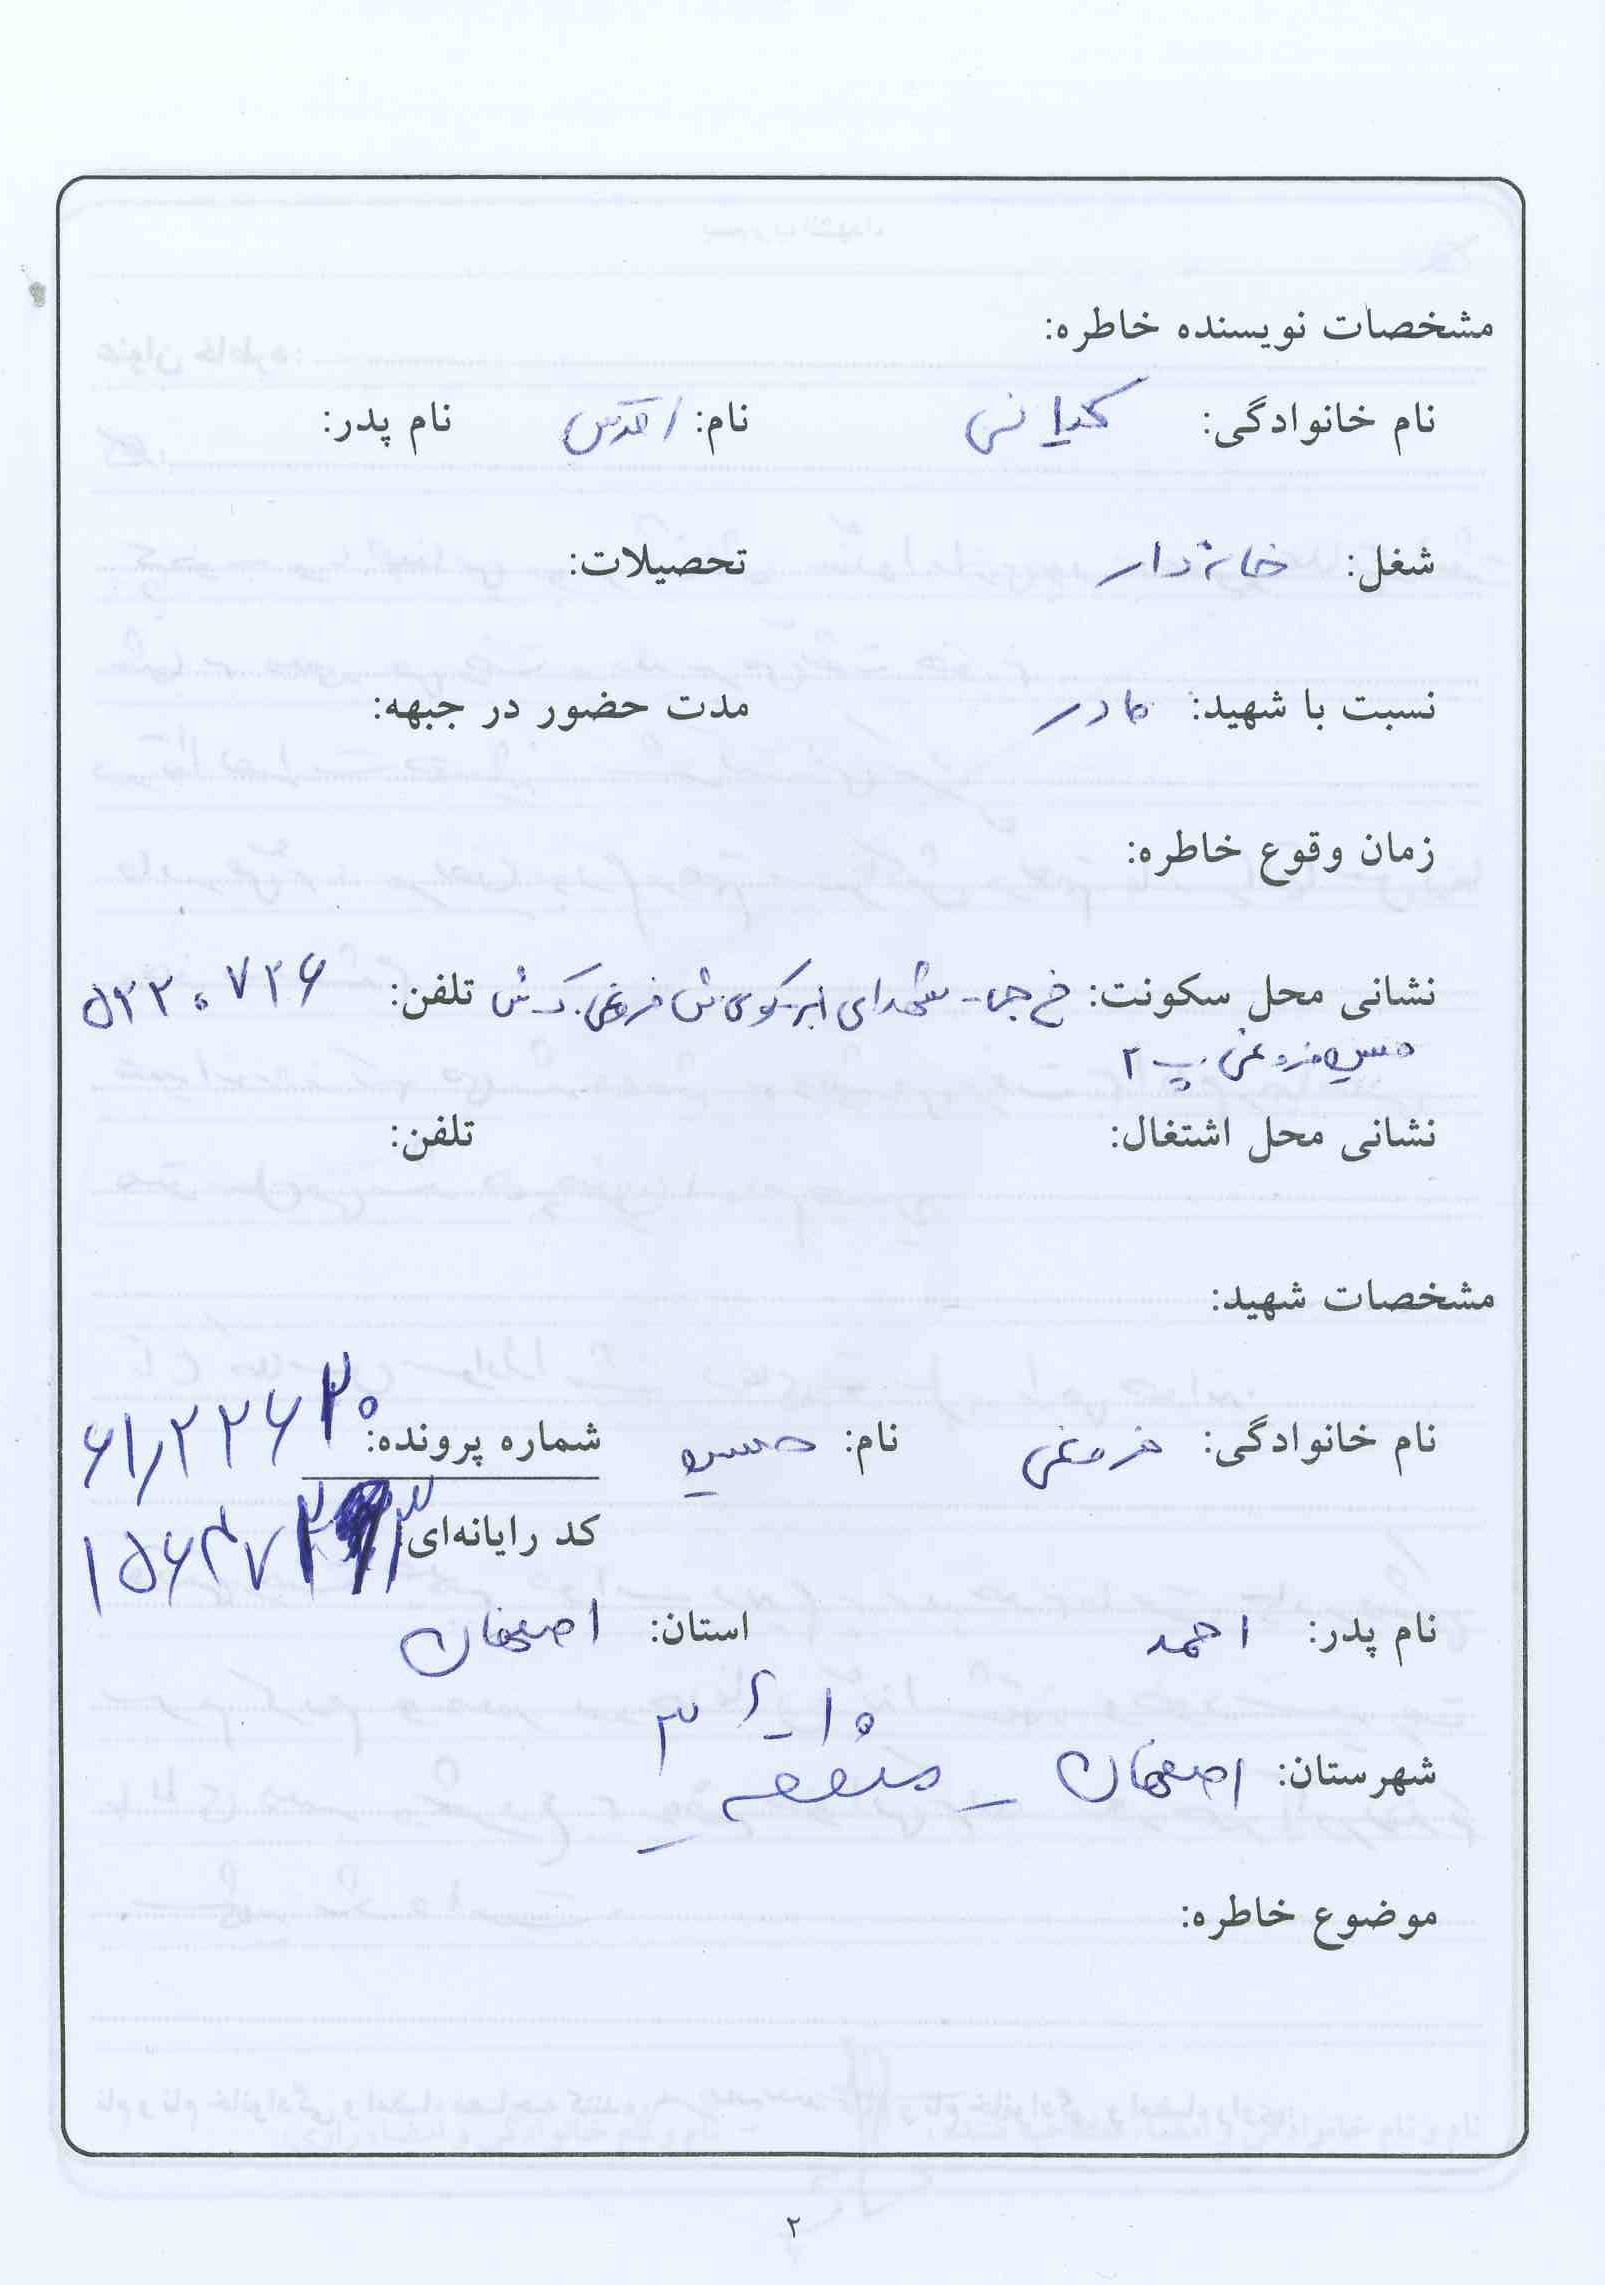 مشخصات نویسنده خاطره:
نام خانوادگی: کیانی نام: اقدس نام پدر:
شغل: خانه دار تحصیلات:
نسبت با شهید: مادر مدت حضور در جبهه:
زمان وقوع خاطره:
نشانی محل سکونت: خ جی - شهدای ابر کوی ش فروغی ک ش تلفن: ۵۲۲۰۷۲۶
حسین فروغی پ ۲
نشانی محل اشتغال: تلفن:
مشخصات شهید:
نام خانوادگی: فروغی نام: حسین شماره پرونده: ۶۱٫۲۲۶۳۰
کد رایانه‌ای:
نام پدر: احمد استان: اصفهان
شهرستان: اصفهان – منطقه ۳
موضوع خاطره:
۲